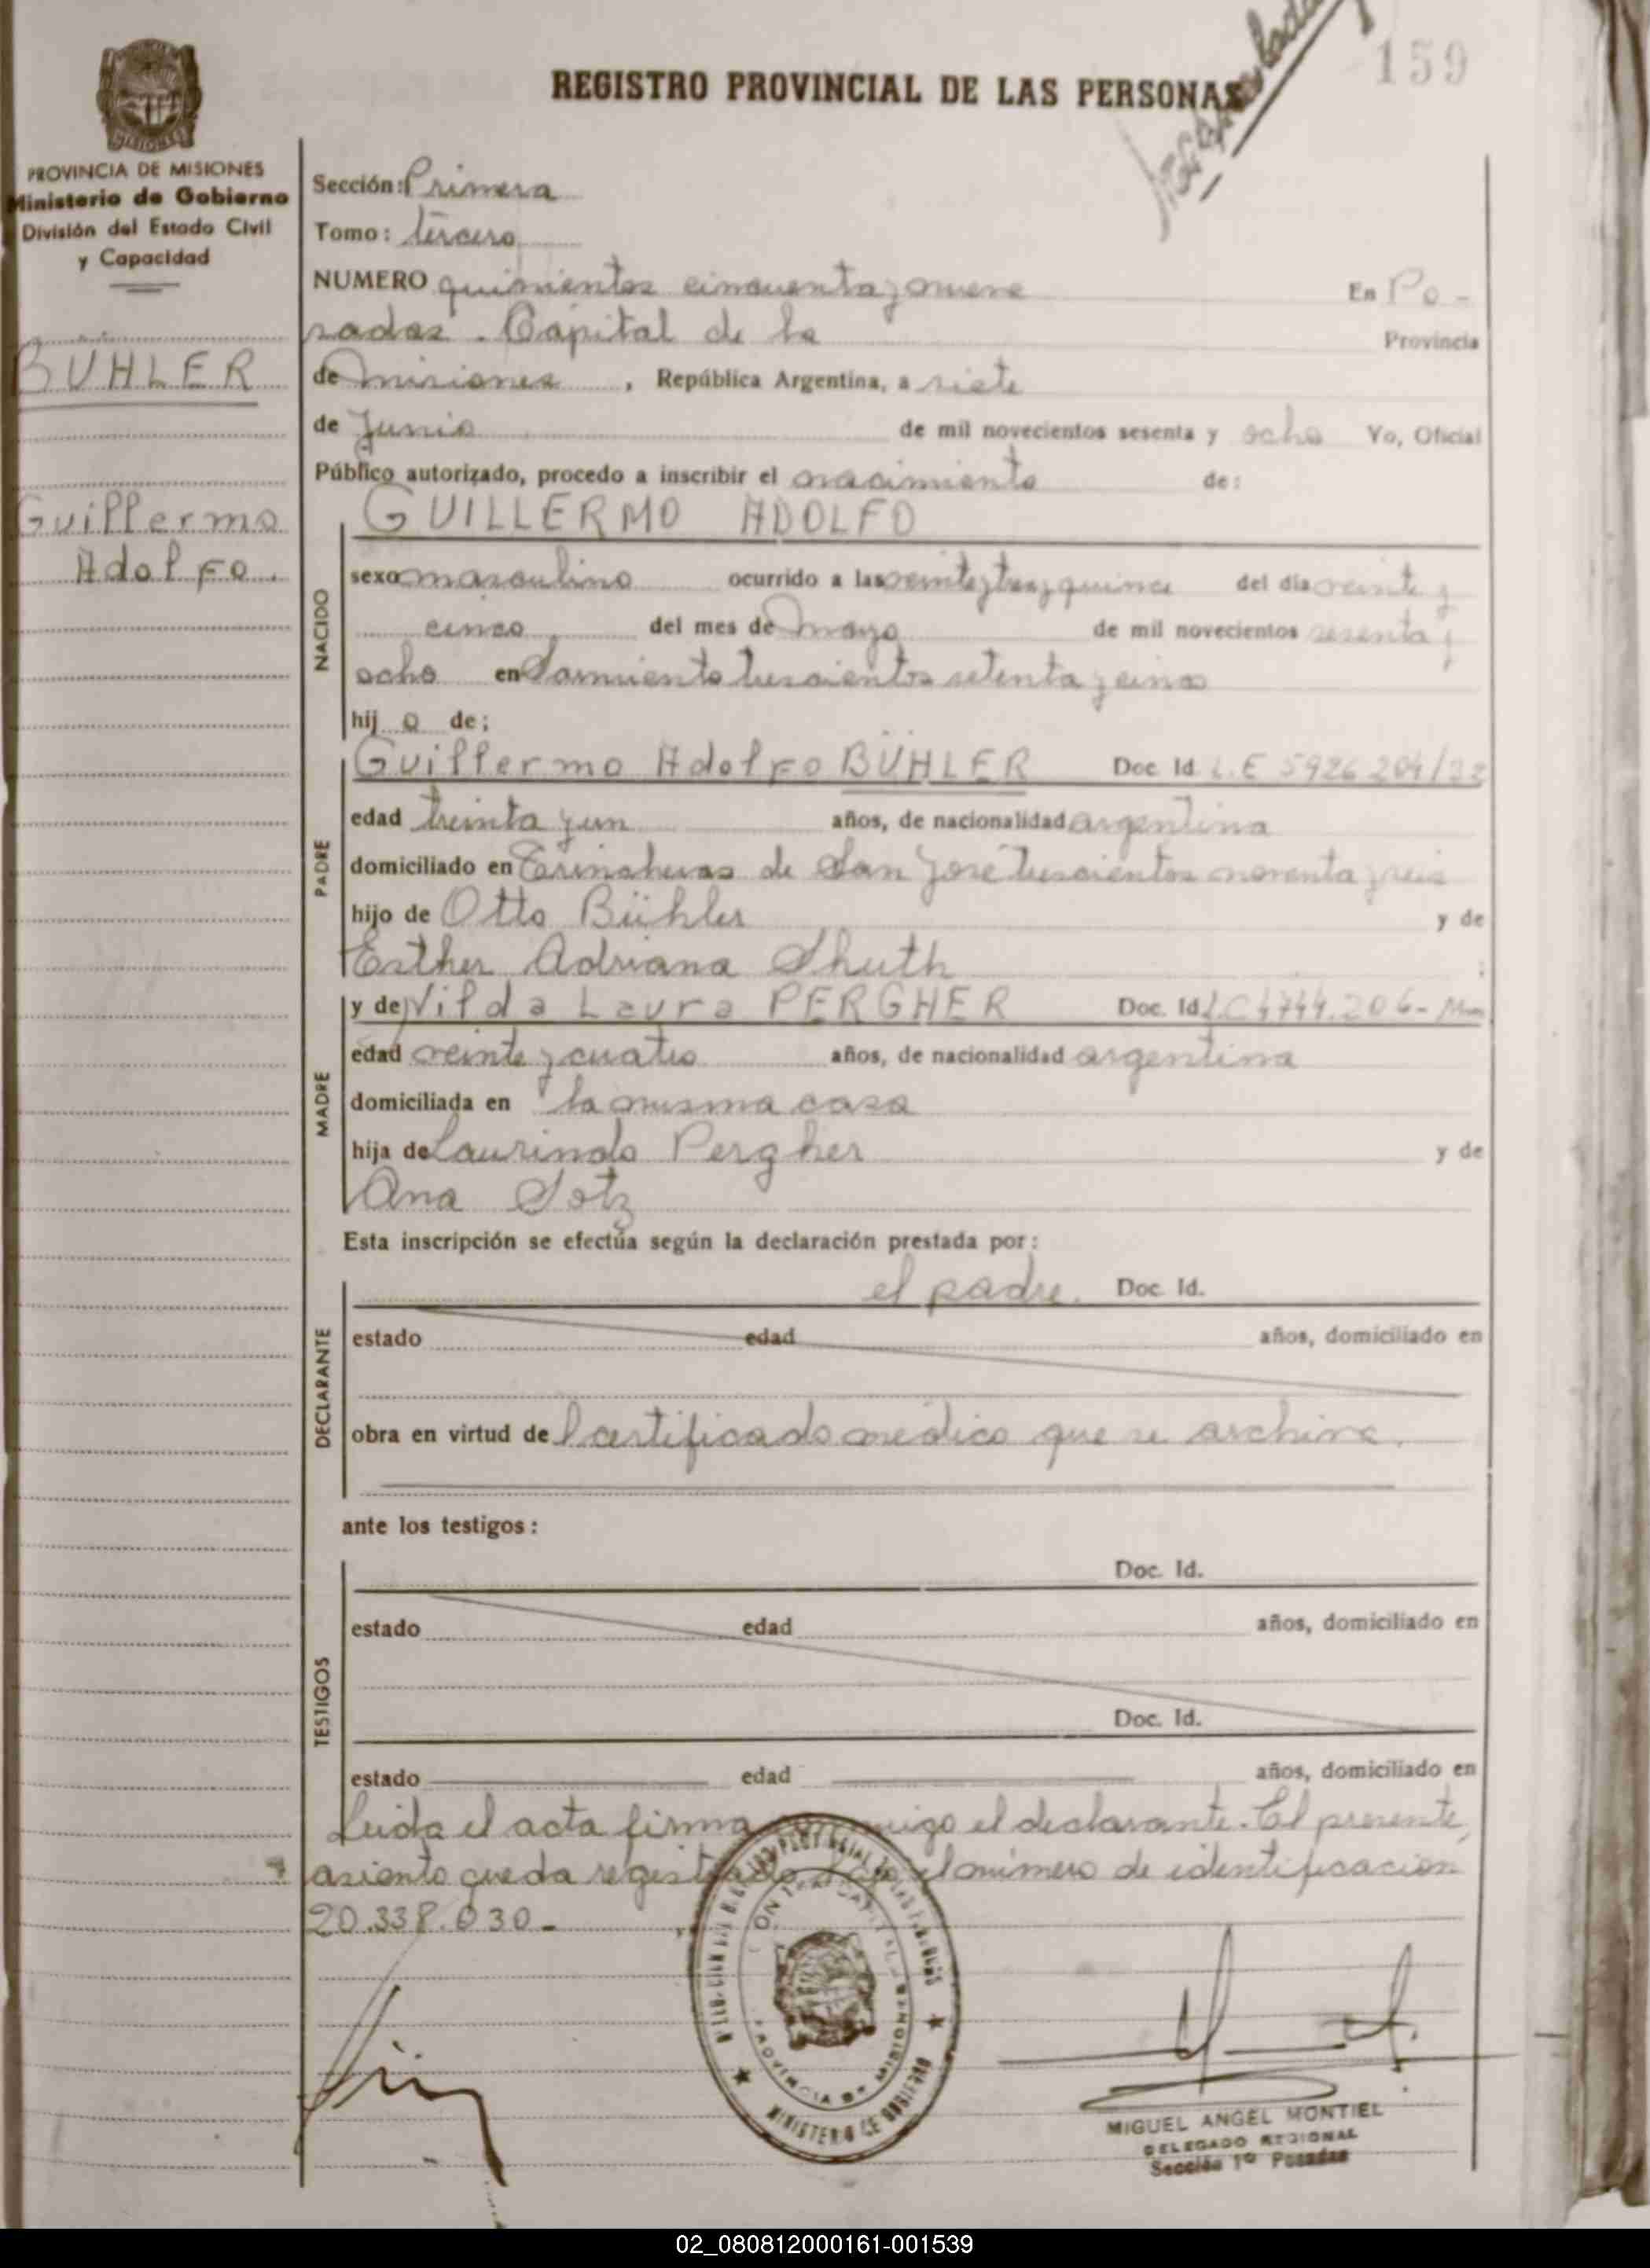 159
REGISTRO PROVINCIAL DE LAS PERSONAS
MISIONES
PROVINCIA DE MISIONES
Ministerio de Gobierno
División del Estado Civil
y Capacidad
BUHLER
Guillermo
Adolfo.
Sección: Primera
Tomo: tercero
NUMERO quinientos cincuenta y nueve En Po-
sadas. Capital de la Provincia
de misiones, República Argentina, a siete
de Junio de mil novecientos sesenta y ocho Yo, Oficial
Público autorizado, procedo a inscribir el nacimiento de:
GUILLERMO ADOLFO
NACIDO
sexo masculino ocurrido a las veinte y tres y quince del día veinte y
cinco del mes de mayo de mil novecientos sesenta y
ocho en Sarmiento trescientos setenta y cinco
hij o de:
PADRE
Guillermo Adolfo BÜHLER Doc. Id. L.E 5926204/
edad treinta y un años, de nacionalidad argentina
domiciliado en Trincheras de San José trescientos noventa y seis
hijo de Otto Bühler y de
Esther Adriana Shuth
MADRE
y de Nilda Laura PERGHER Doc. Id. L.C 4744.206-
edad veinte y cuatro años, de nacionalidad argentina
domiciliada en la misma casa
hija de Laurindo Pergher y de
Ana Sotz
Esta inscripción se efectúa según la declaración prestada por:
DECLARANTE
el padre. Doc. Id.
estado edad años, domiciliado en
obra en virtud del certificado médico que se archiva.
ante los testigos:
TESTIGOS
Doc. Id.
estado edad años, domiciliado en
Doc. Id.
estado edad años, domiciliado en
Leida el acta firma conmigo el declarante. El presente
asiento queda registrado bajo el número de identificación
20.338.030-
PROVINCIA DE MISIONES
MINISTERIO DE GOBIERNO
MIGUEL ANGEL MONTIEL
DELEGADO REGIONAL
Sección 1º Posadas
02_080812000161-001539